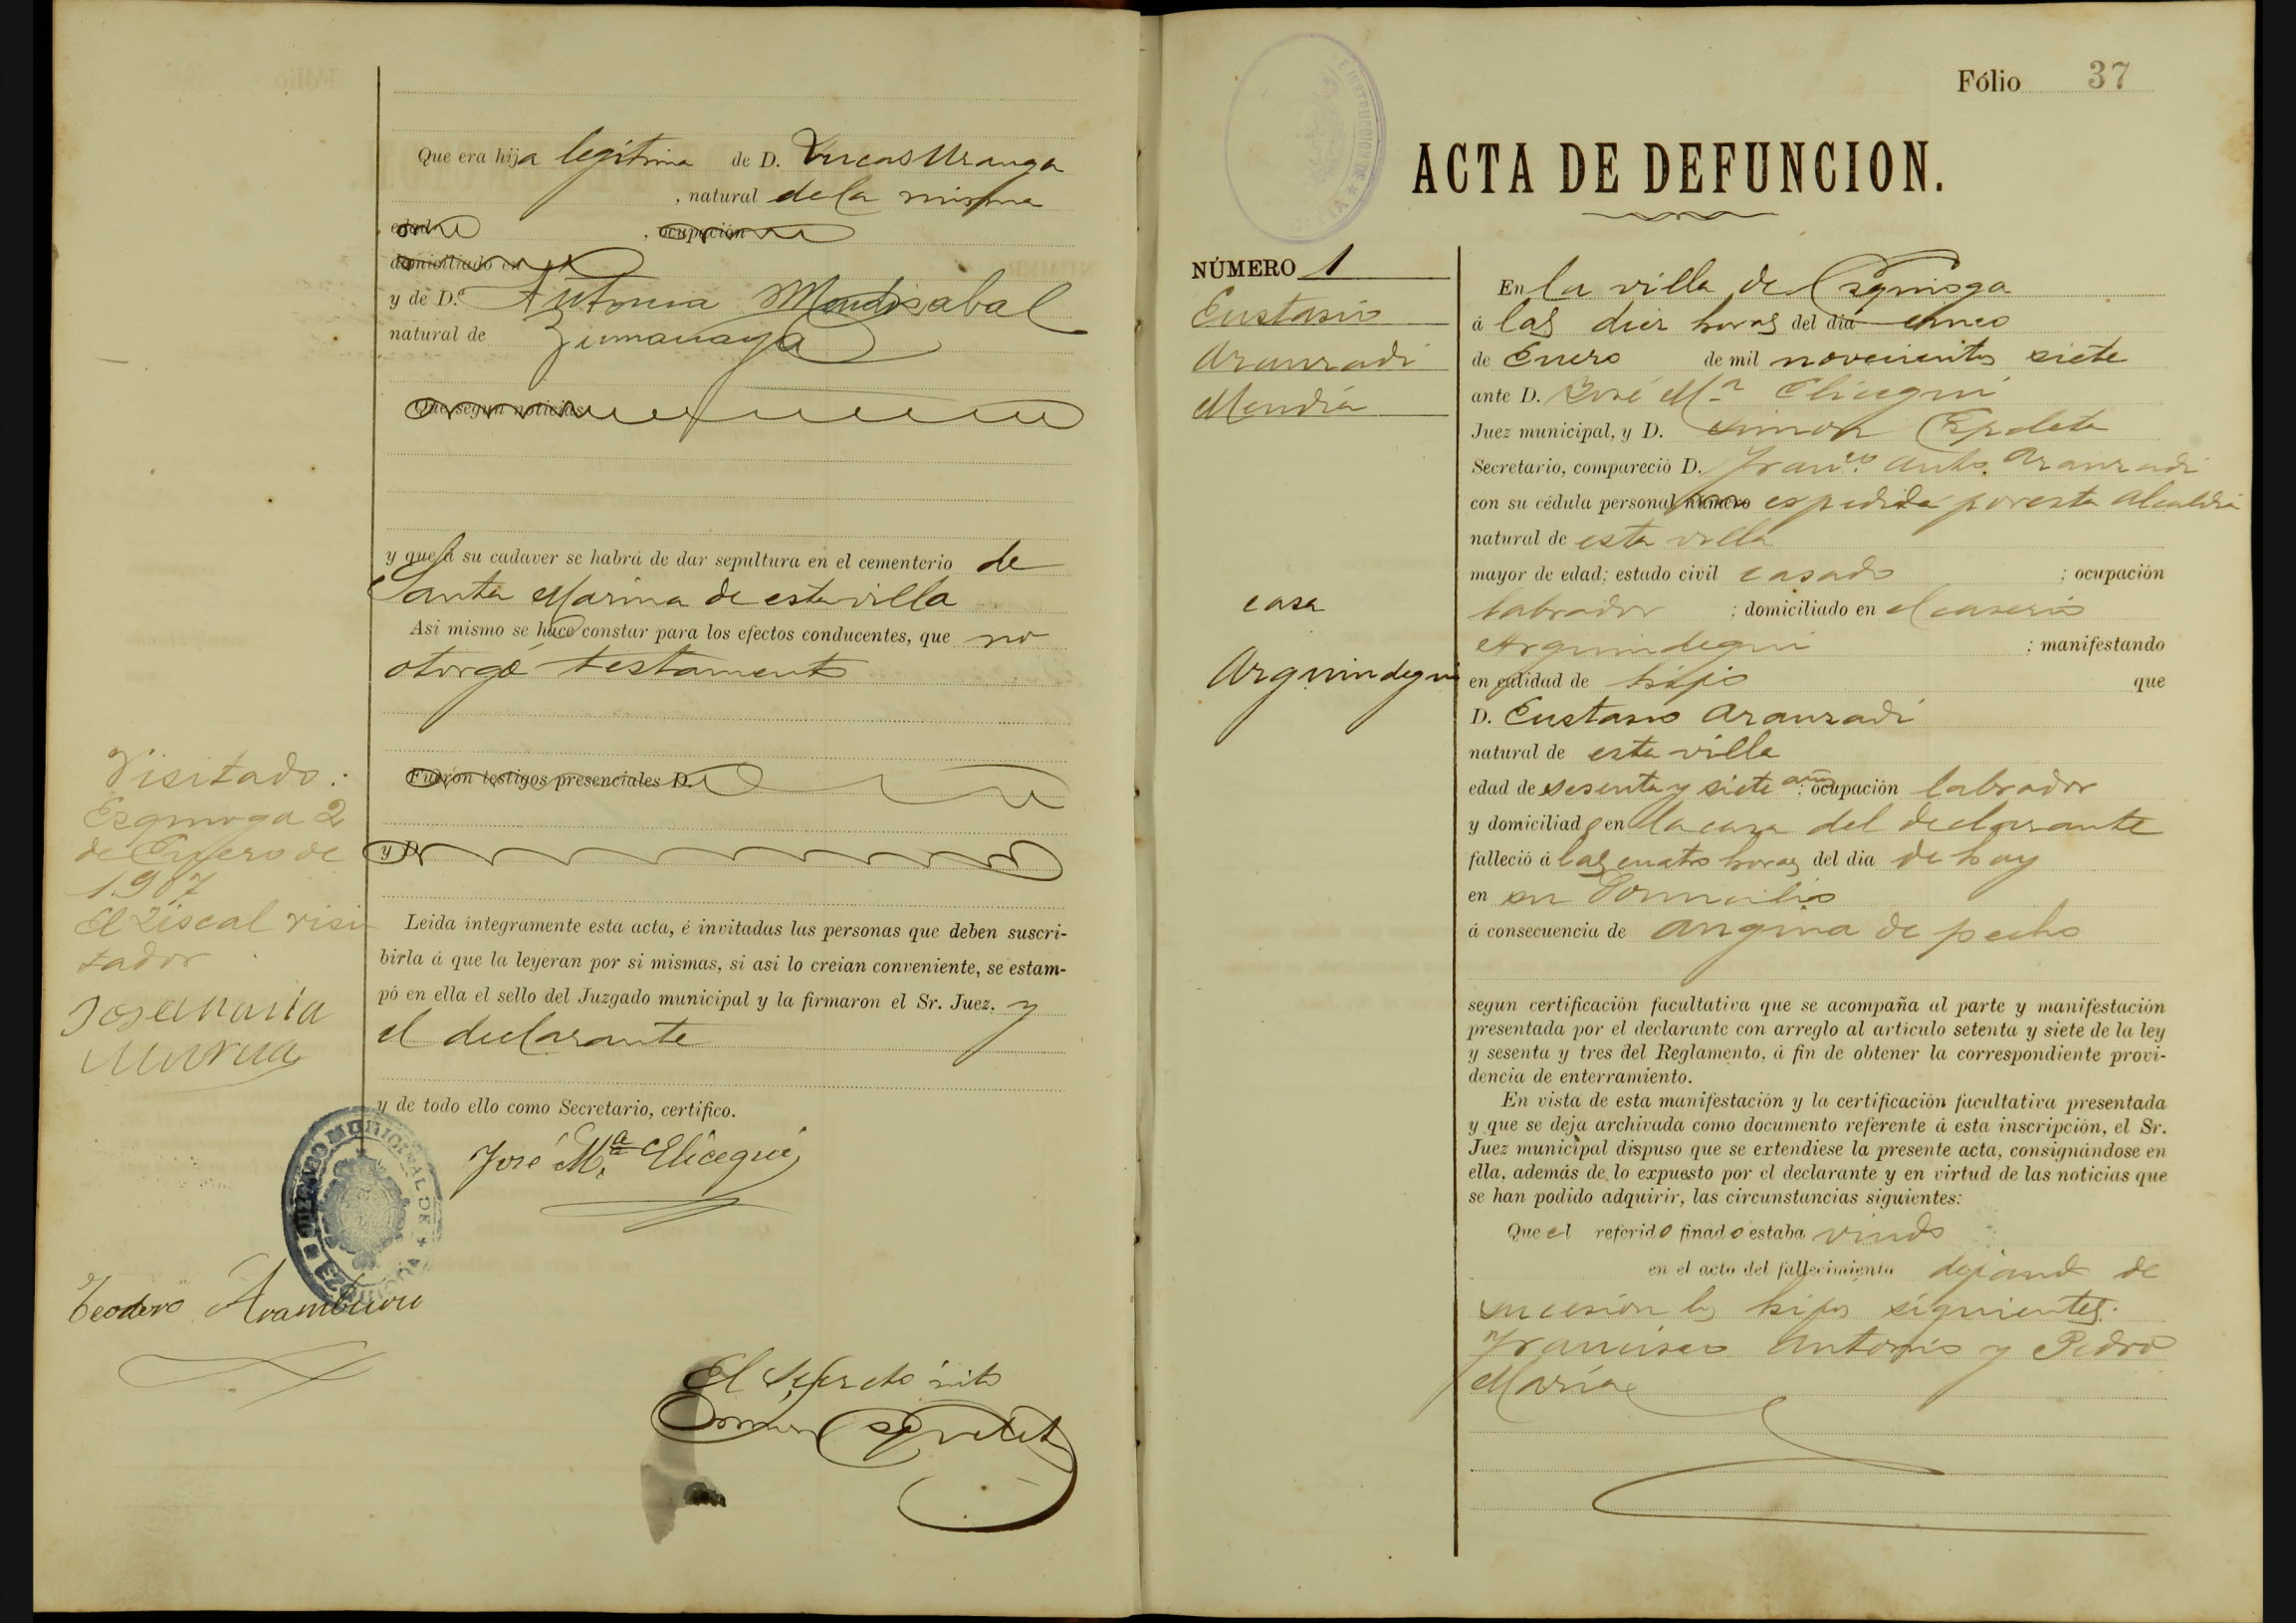 Que era hija legitima de D. Lucas Uranga
, natural de la misma
edad , ocupación
domiciliado en
y de D.ª Antonia Mendizabal
natural de Zumarraga
Que segun noticias
y que á su cadaver se habrá de dar sepultura en el cementerio de
Santa Marina de esta villa
Asi mismo se hace constar para los efectos conducentes, que no
otorgó testamento
Fueron testigos presenciales D.
y D.
Leida íntegramente esta acta, é invitadas las personas que deben suscri-
birla á que la leyeran por si mismas, si asi lo creian conveniente, se estam-
pó en ella el sello del Juzgado municipal y la firmaron el Sr. Juez, y
el declarante
y de todo ello como Secretario, certifico.
José M.ª Elicegui
Teodoro Aramburu
El Secretario
Simon Ezpeleta
Visitado:
Ezquioga 2
de Enero de
1907
El Fiscal visi
tador
José María
Murua
JUZGADO MUNICIPAL DE
Fólio 37
ACTA DE DEFUNCION.
É INSTRUCCION DE
NÚMERO 1
Eustasio
Aranzadi
Mendia
casa
Arguindegui
En la villa de Ezquioga
á las diez horas del dia cinco
de Enero de mil novecientos siete
ante D. José M.ª Elicegui
Juez municipal, y D. Simon Ezpeleta
Secretario, compareció D. Fran.co Anto. Aranzadi
con su cédula personal número espedida por esta Alcaldia
natural de esta villa
mayor de edad; estado civil casado ; ocupación
labrador ; domiciliado en el caserio
Arguindegui ; manifestando
en calidad de hijo que
D. Eustasio Aranzadi
natural de esta villa
edad de sesenta y siete años; ocupación labrador
y domiciliado en la casa del declarante
falleció á las cuatro horas del dia de hoy
en su domicilio
á consecuencia de angina de pecho
segun certificación facultativa que se acompaña al parte y manifestación
presentada por el declarante con arreglo al artículo setenta y siete de la ley
y sesenta y tres del Reglamento, á fin de obtener la correspondiente provi-
dencia de enterramiento.
En vista de esta manifestación y la certificación facultativa presentada
y que se deja archivada como documento referente á esta inscripción, el Sr.
Juez municipal dispuso que se extendiese la presente acta, consignándose en
ella, además de lo expuesto por el declarante y en virtud de las noticias que
se han podido adquirir, las circunstancias siguientes:
Que el referido finado estaba viudo
en el acto del fallecimiento dejando de
sucesión los hijos siguientes:
Francisco Antonio y Pedro
María